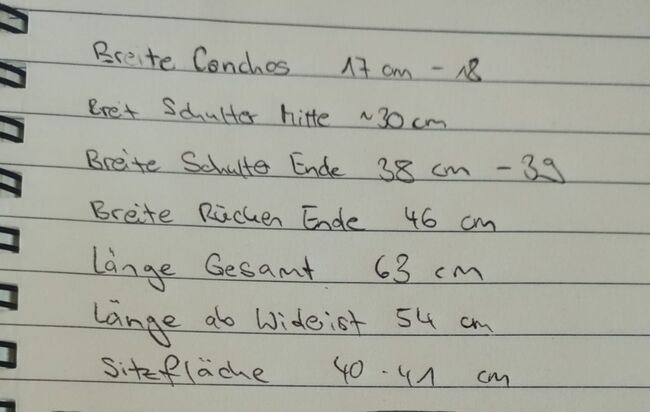 Breite Conchos 17 cm - 18
Breit Schulter Mitte ~30 cm
Breite Schulter Ende 38 cm - 39
Breite Rücken Ende 46 cm
Länge Gesamt 63 cm
Länge ab Widerist 54 cm
Sitzfläche 40 - 41 cm